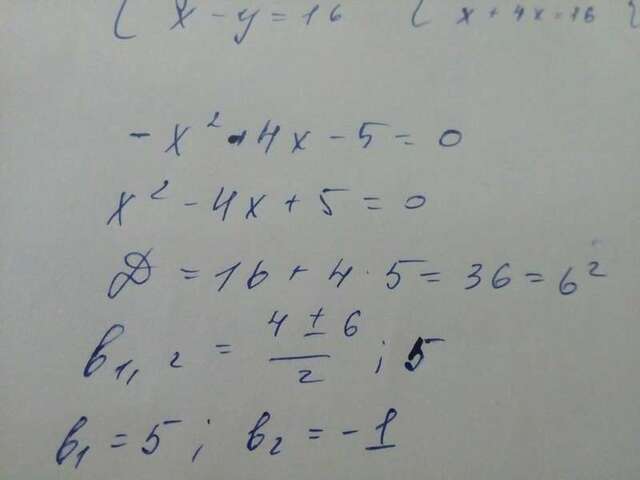 { x - y = 16 { x + 4x = 16 {
- x² + 4x - 5 = 0
x² - 4x + 5 = 0
D = 16 + 4 · 5 = 36 = 6²
b₁,₂ = (4 ± 6)/2 ; 5
b₁ = 5 ; b₂ = -1